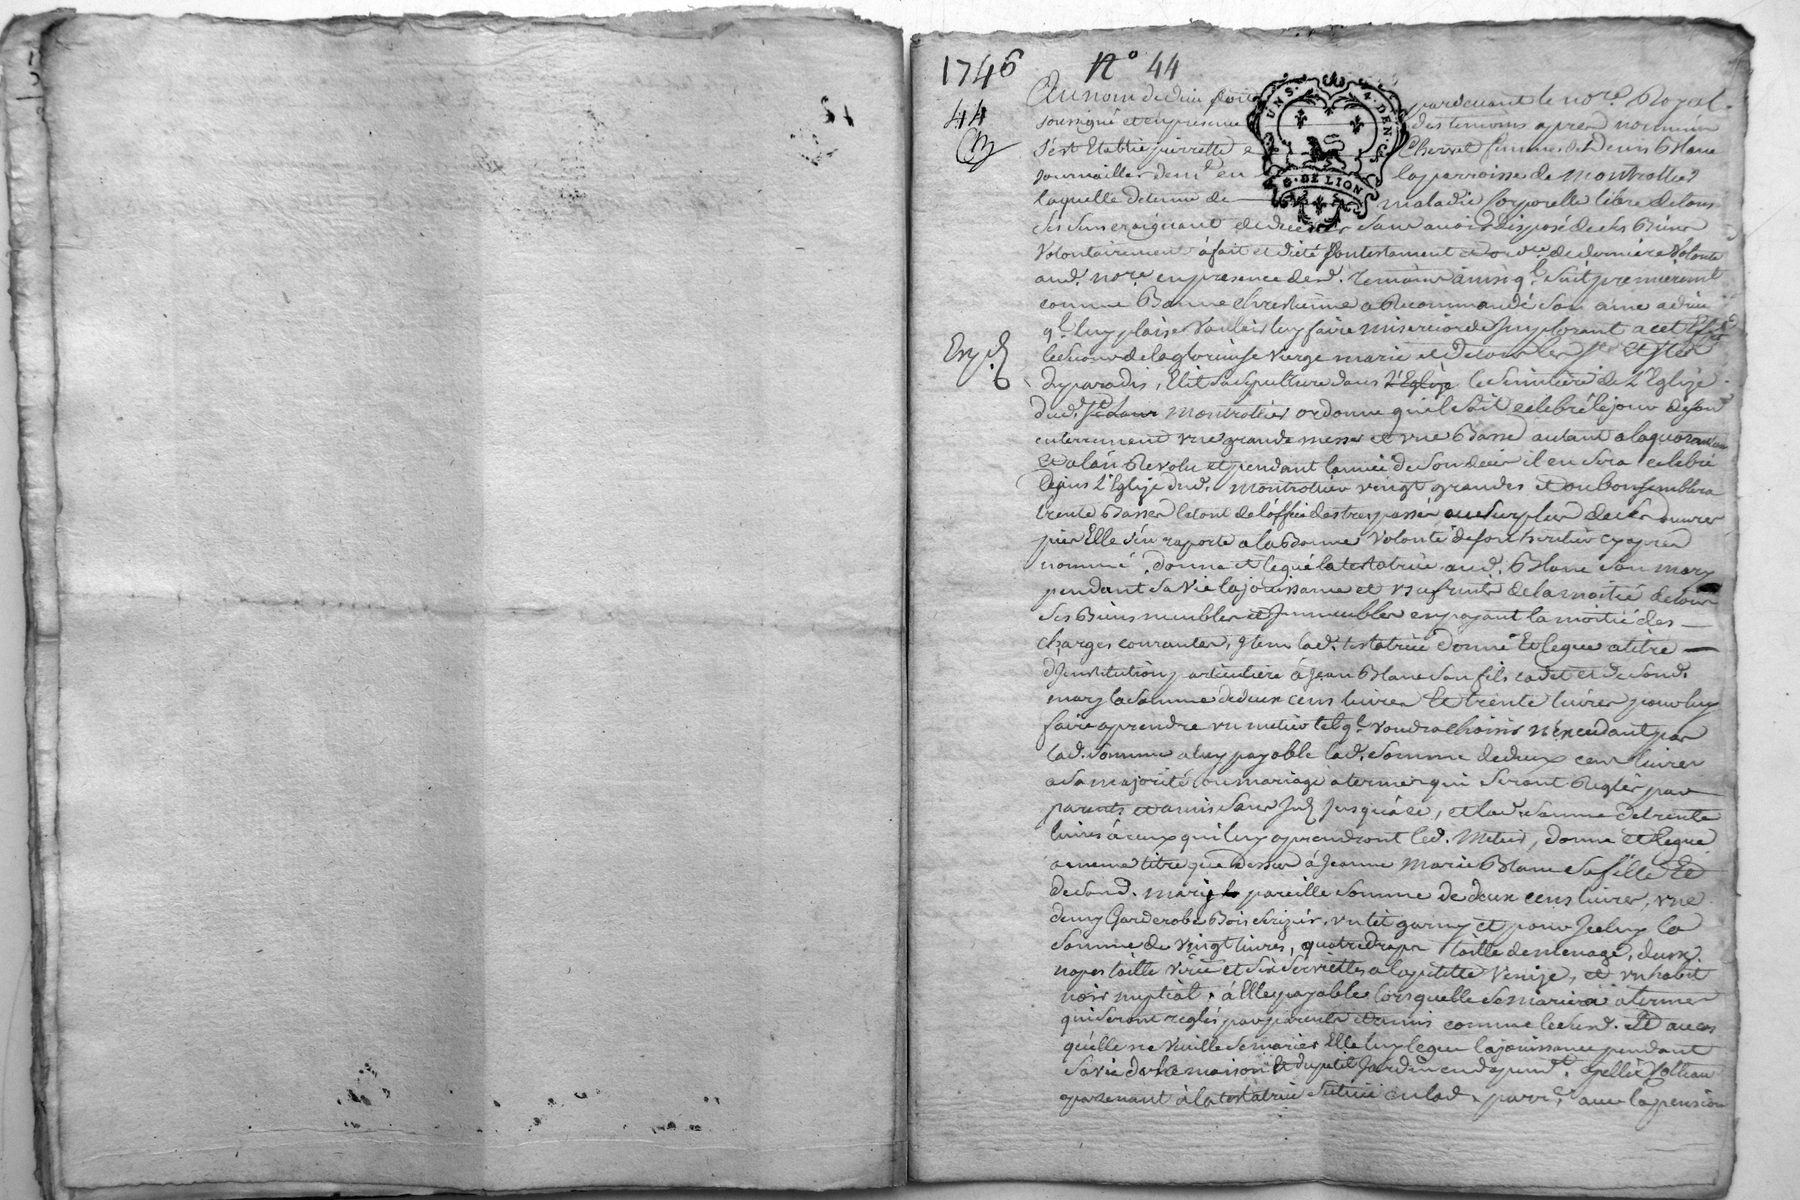 1746
N° 44
44
Au nom de dieu soit pardevant le nore. Royal
soussigné et en presence des temoins apres nommés
s'est Etablie pierrette Cherrel femme de Denis Blanc
journaillier demt. en la perroisse de Montrottier
UNS. 4. DEN.
G. DE LION
laquelle detenue de maladie Corporelle libre de tous
ses sens craignant de deceder sans avoir disposé de ses Biens
Volontairement à fait et dicté son testament et ordce. de derniere Volonté
aud. nore. en presence desd. temoins ainsi ql. suit premieremt
comme Bonne chrestienne a Recommandé son ame a dieu
ql. luy plaise Vouloir luy faire misericorde Implorant a cet Effet
Exp.
le secour de la glorieuse vierge marie et de tous les Sts et Stes
du paradis, Elit sa sepulture dans l'Eglise le simitiere de L'Eglise
dud. Montrotier ordonne qu'il soit celebré le jour de son
enterrement une grande messe et une Basse autant a la quarantaine
et a l'an Revolu et pendant l'année de son deces il en sera celebré
dans L'Eglise dud. Montrotier vingt grandes et ou bon semblera
trente Basses le tout de l'office des trespassés au surplus de ses oeuvres
pies Elle s'en raporte a la Bonne Volonté de son heritier cy apres
nommé, donne et legue la testatrice aud. Blanc son mary
pendant sa vie la jouissance et usufruits de la moitié de tous
ses Biens meubles et Immeubles en payant la moitié des
charges courantes, Item lad. testatrice donne et legue a titre
d'Institution particuliere à jean Blanc son fils cadet et de sond.
mary la somme de deux cens livres et trente livres pour luy
faire aprendre un metier tel ql. voudra choisir n'excedant pas
lad. somme a luy payable lad. somme de deux cens livres
a sa majorité ou mariage a termes qui seront Reglés par
parents et amis sans Int. jusqu'a ce, et lad. somme de trente
livres à ceux qui luy aprendront led. Metier, donne et legue
a meme titre que dessus à jeanne Marie Blanc sa fille et
de sond. mari pareille somme de deux cens livres, une
demy Garderobe Bois Serizier, un lit garny et pour Iceluy la
somme de vingt livres, quatre draps toille de menage, deux
napes toille et six serviettes a la petitte Venise, et un habit
noir nuptial, à Elle payables lorsquelle se mariera a termes
qui seront reglés par parents et amis comme le susd. Et au cas
qu'elle ne veuille se marier Elle luy legue la jouissance pendant
sa vie d'une maison et du petit Jardin en dependt. apellée
apartenant à la testatrice scituée en lad. parre. avec la pension